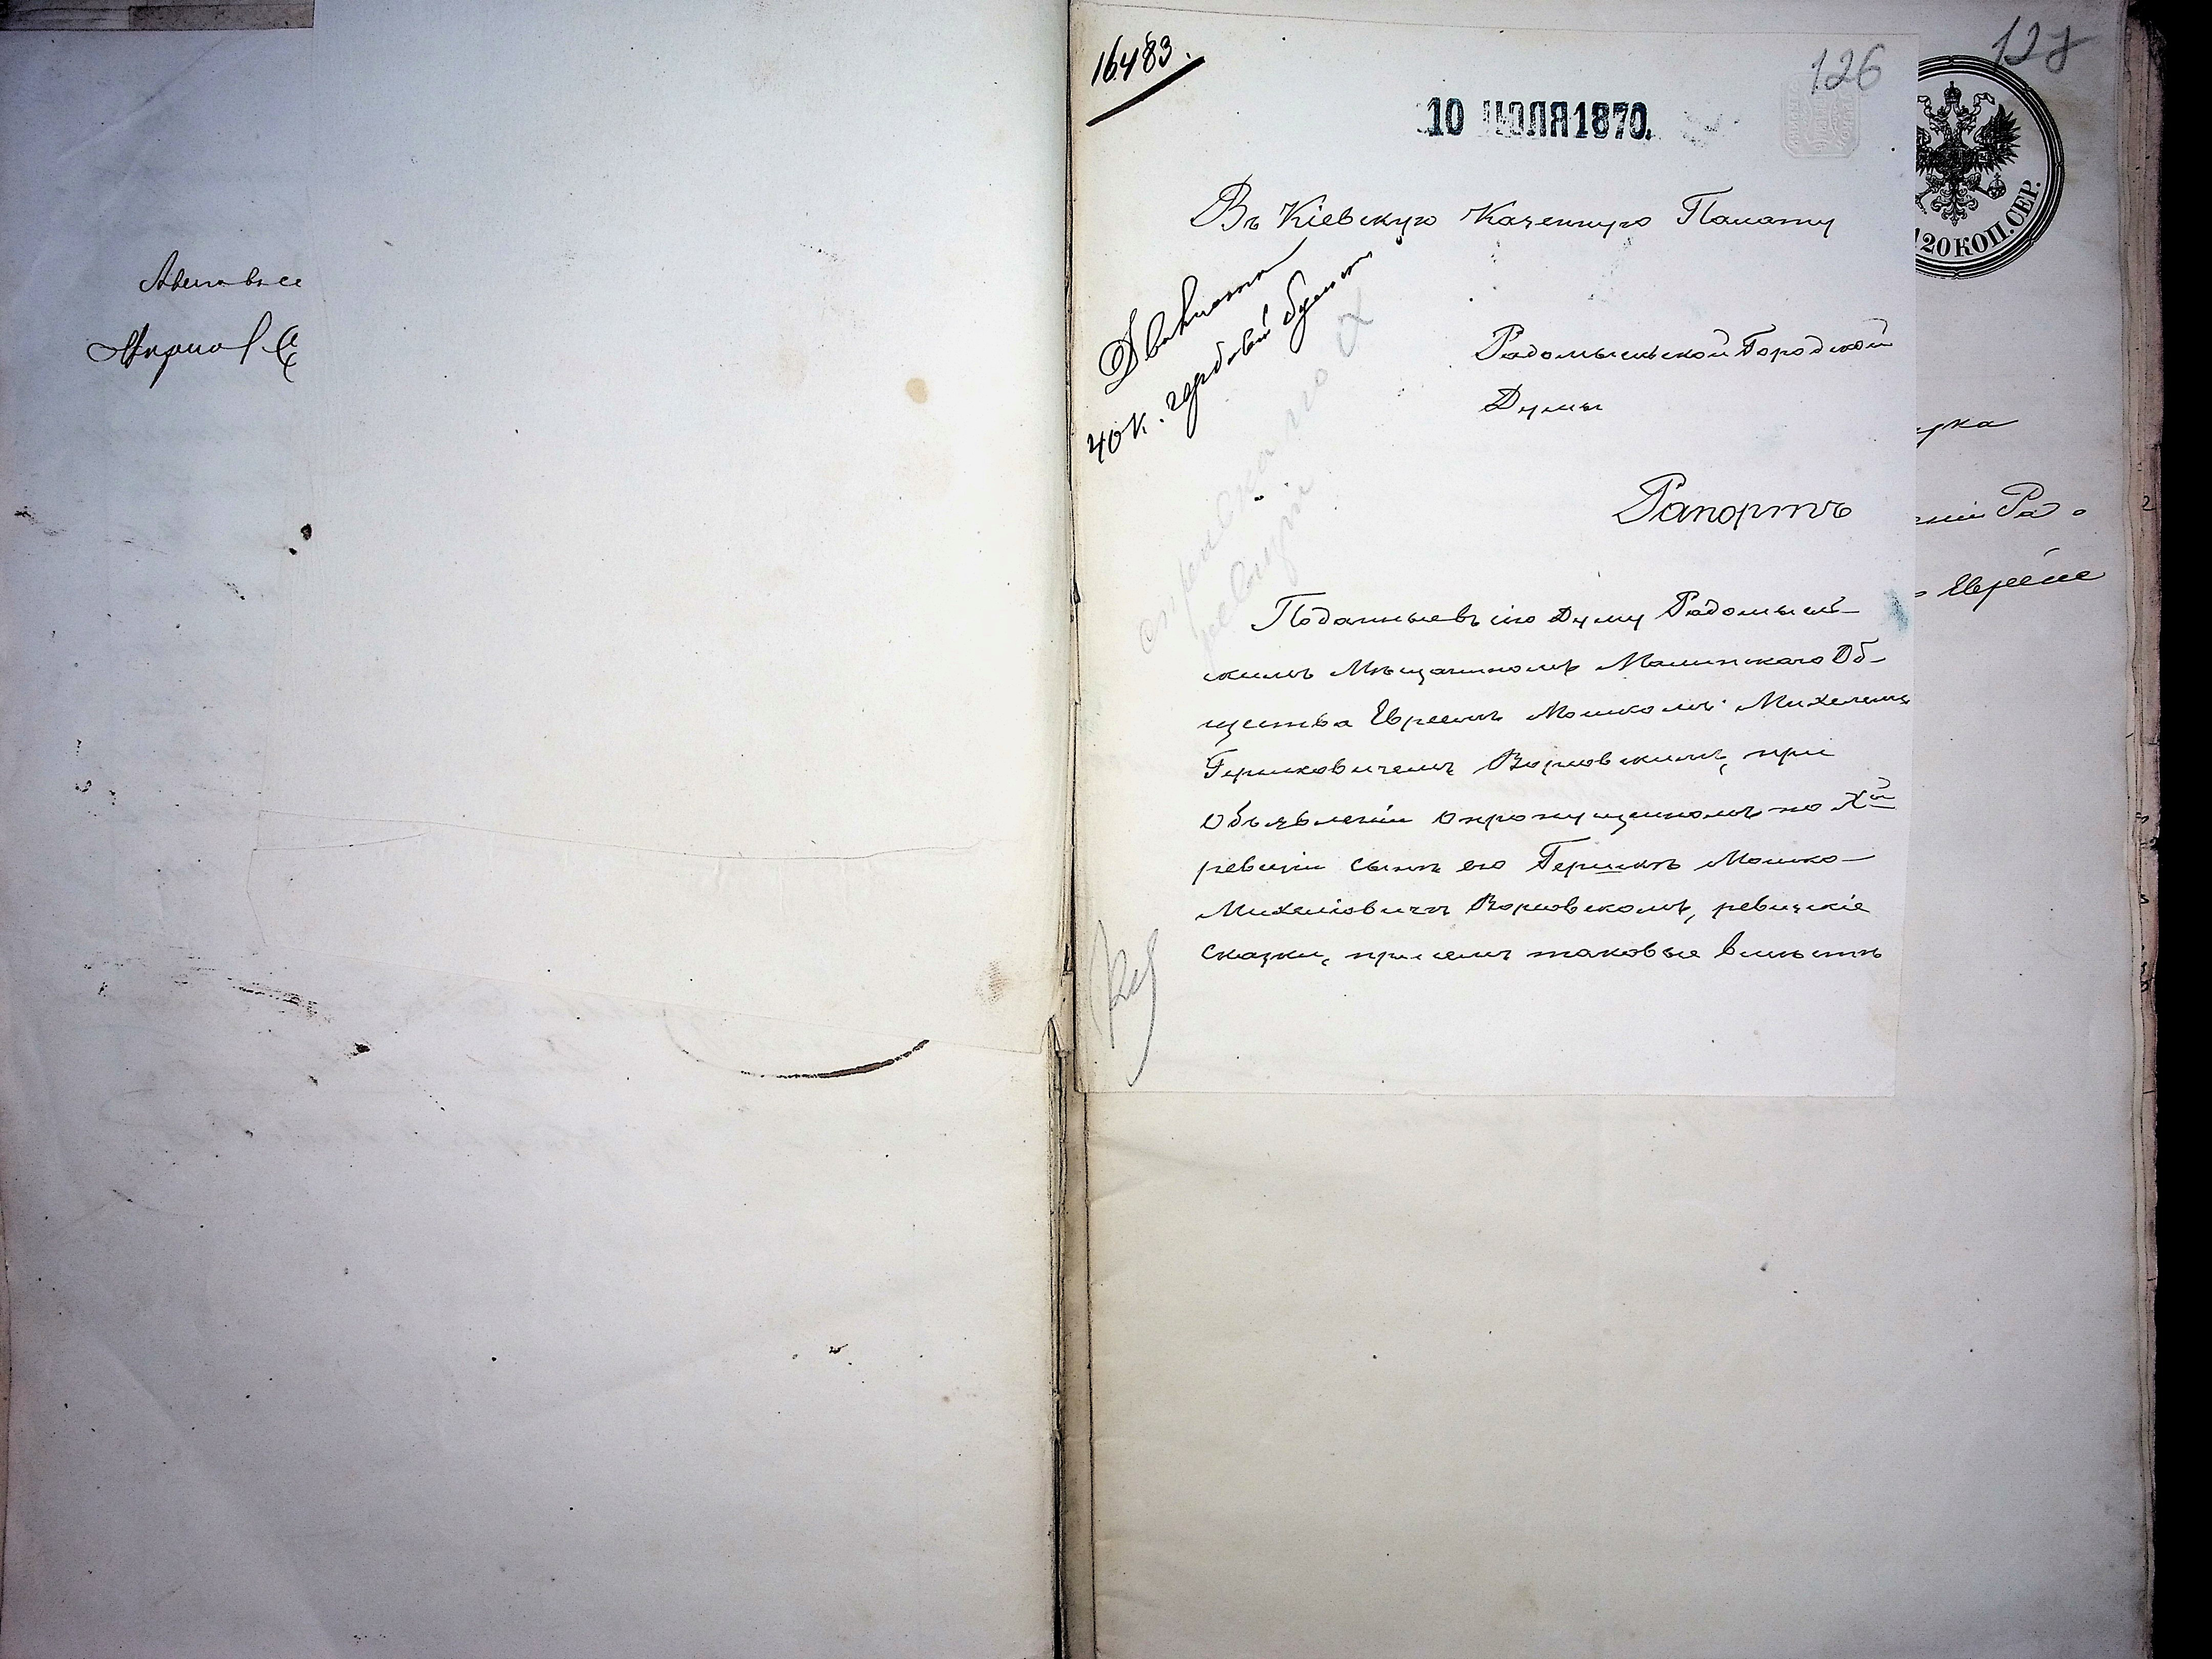 16483.
126
10 ИЮЛЯ 1870.
Въ Кіевскую Казенную Палату
Два листа
40 к. гербовой бумаги
Радомысльской Городской
Думы
справка по X
ревизіи
Рапортъ
Поданные въ сію Думу Радомысль-
скимъ Мѣщаниномъ Малинскаго Об-
щества Евреемъ Мошкомъ Михелемъ
Гершковичемъ Ворновскимъ, при
Объявленіи о пропущенномъ по Хой
ревизіи сынѣ его Гершкѣ Мошко-
Михелiовичѣ Ворновскомъ, ревизскіе
сказки, при семъ таковые вмѣстѣ
128
20 КОП. СЕР.
Ра-
Евреѣ